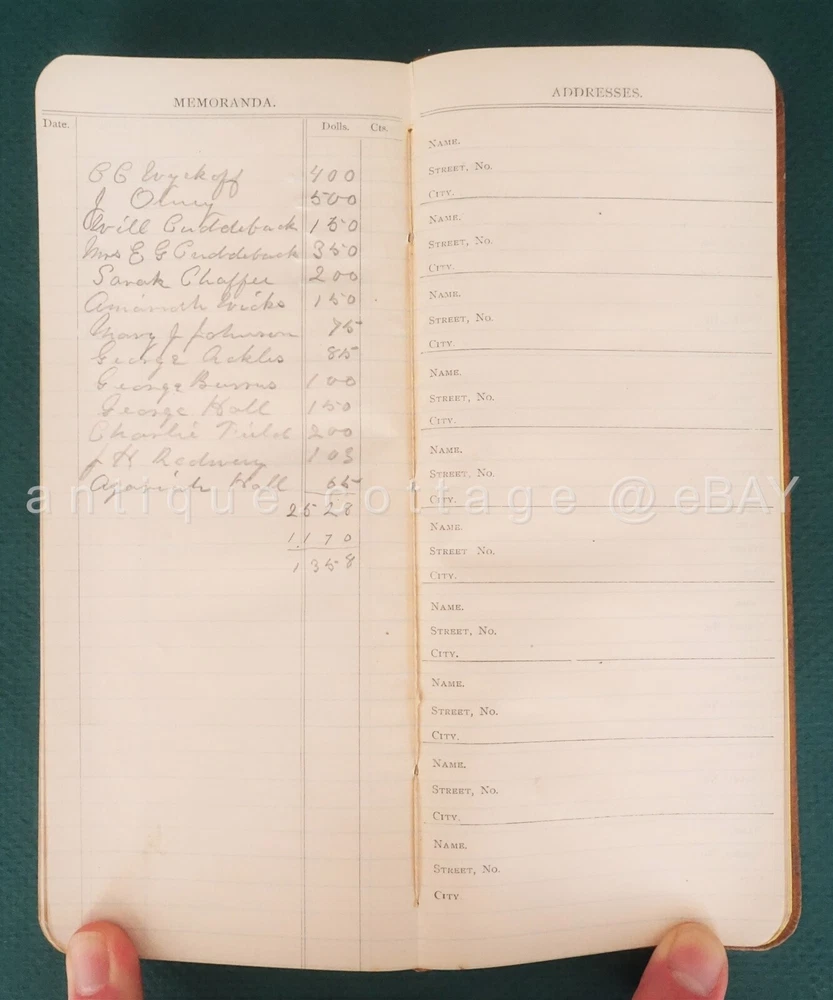 MEMORANDA.
Date. Dolls. Cts.
C C Wyckoff 400
J Olney 500
Will Cuddeback 150
Mrs E G Cuddeback 350
Sarah Chaffee 200
Amanda Wicks 150
Mary J Johnson 75
George Ackles 85
George Burrus 100
George Hall 150
Charlie Field 200
J H Redway 103
Hall 65
2528
1170
1358
ADDRESSES.
NAME.
STREET, NO.
CITY.
NAME.
STREET, NO.
CITY.
NAME.
STREET, NO.
CITY.
NAME.
STREET, NO.
CITY.
NAME.
STREET, NO.
CITY.
NAME.
STREET NO.
CITY.
NAME.
STREET, NO.
CITY.
NAME.
STREET, NO.
CITY.
NAME.
STREET, NO.
CITY.
NAME.
STREET, NO.
CITY
antique cottage @ eBAY